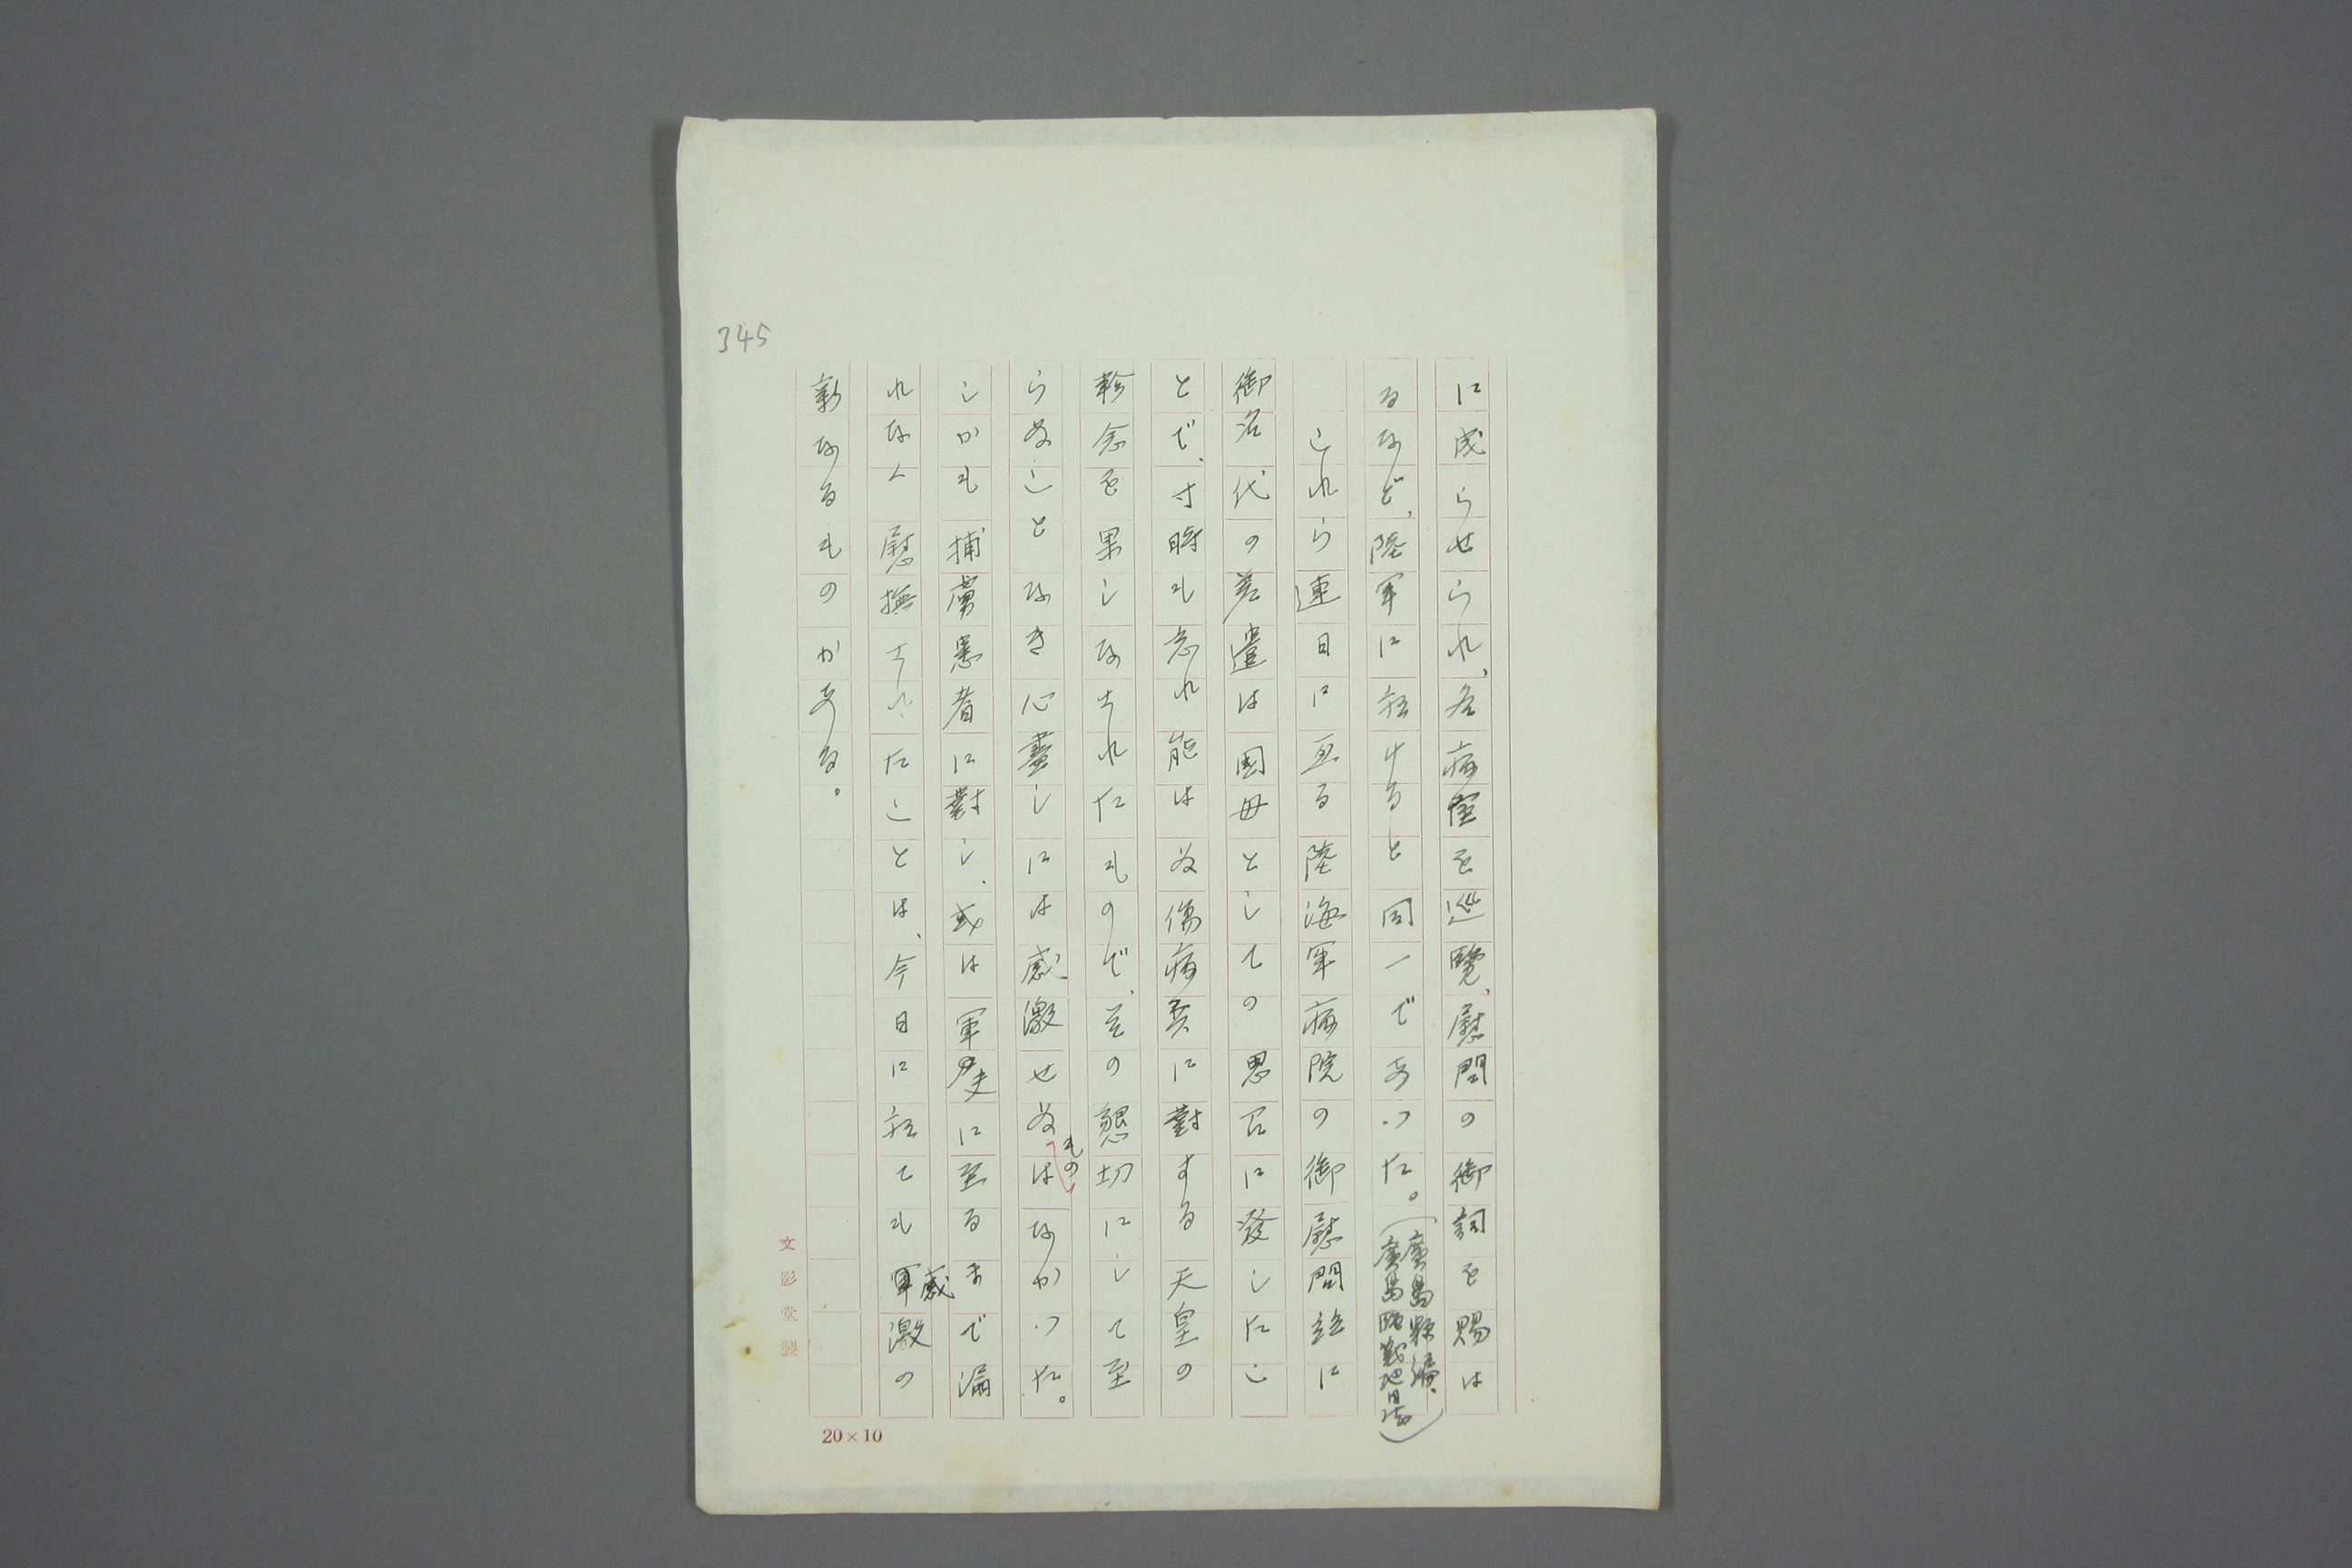 に成らせられ、各病室を巡覧、慰問の御詞を賜は
るなど、陸軍に於けると同一であつた。(廣島縣編、廣島臨戰地日誌)
これら連日に亙る陸海軍病院の御慰問並に
御名代の差遣は國母としての思召に發したこ
とで、寸時も忘れ能はぬ傷病兵に對する天皇の
軫念を果しなされたもので、その懇切にして至
らぬことなき心盡しには感激せぬものはなかつた。
しかも捕虜患者に對し、或は軍夫に至るまで漏
れなく慰撫されたことは、今日に於ても感激の
新なるものがある。
345
文影堂製
20×10